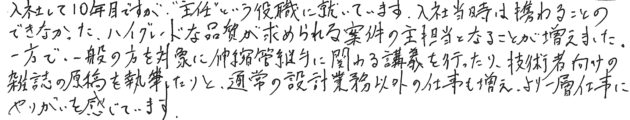 入社して10年目ですが、"主任"という役職に就いています。入社当時は携わることの
できなかった、ハイグレードな品質が求められる案件の主担当となることが増えました。
一方で、一般の方を対象に伸縮管継手に関わる講義を行ったり、技術者向けの
雑誌の原稿を執筆したりと、通常の設計業務以外の仕事も増え、より一層仕事に
やりがいを感じています。